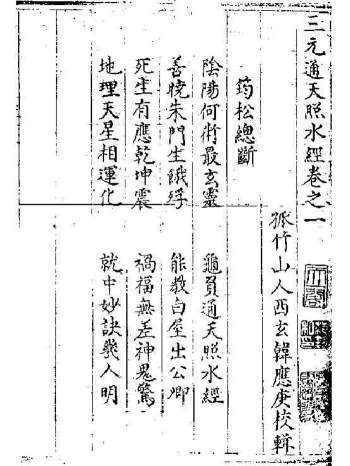 三元通天照水經卷之一
孤竹山人西玄韓應庚校輯
筠松總斷
陰陽何術最玄靈 龜員通天照水經
善曉朱門生餓殍 能教白屋出公卿
死生有應乾坤震 禍福無差神鬼驚
地理天星相運化 就中妙訣幾人明